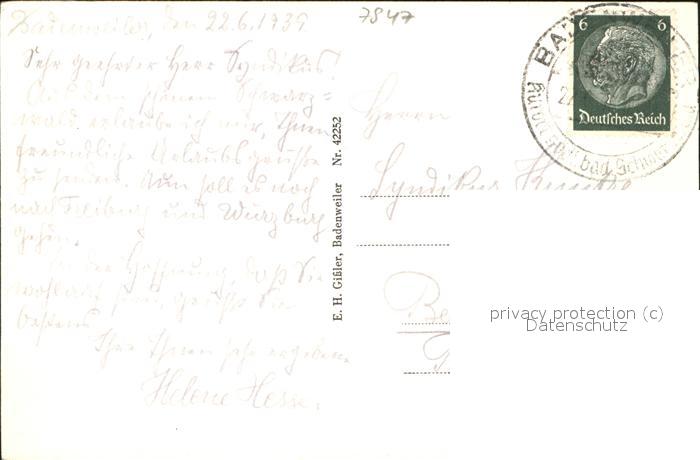 Badenweiler, den 22.6.1939
7847
Sehr geehrter Herr Syndikus!
Aus dem schönen Schwarz=
wald erlaube ich mir, Ihnen
freundliche Urlaubsgrüße
zu senden. Nun soll es noch
nach Freiburg und Würzburg
gehen.
In der Hoffnung, daß Sie
wohlauf sind, grüße Sie
bestens
Ihre Ihnen sehr ergebene
Helene Hesse.
E. H. Gißler, Badenweiler Nr. 42252
Herrn
Syndikus
6 6
Deutsches Reich
privacy protection (c)
Datenschutz